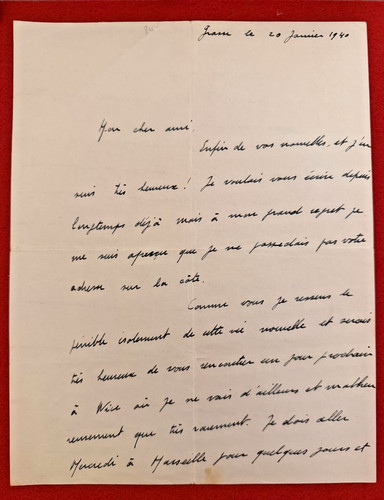 Grasse le 20 Janvier 1940
Mon cher ami
Enfin de vos nouvelles, et j'en
suis très heureux! Je voulais vous écrire depuis
longtemps déjà mais à mon grand regret je
me suis aperçu que je ne possedais pas votre
adresse sur la côte.
Comme vous je ressens le
pénible isolement de cette vie nouvelle et serais
très heureux de vous rencontrer un jour prochain
à Nice où je ne vais d'ailleurs et malheu
reusement que très rarement. Je dois aller
Mercredi à Marseille pour quelques jours et